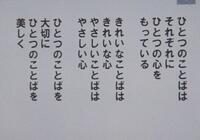 ひとつのことばは
それぞれに
ひとつの心を
もっている
きれいなことばは
きれいな心
やさしいことばは
やさしい心
ひとつのことばを
大切に
ひとつのことばを
美しく